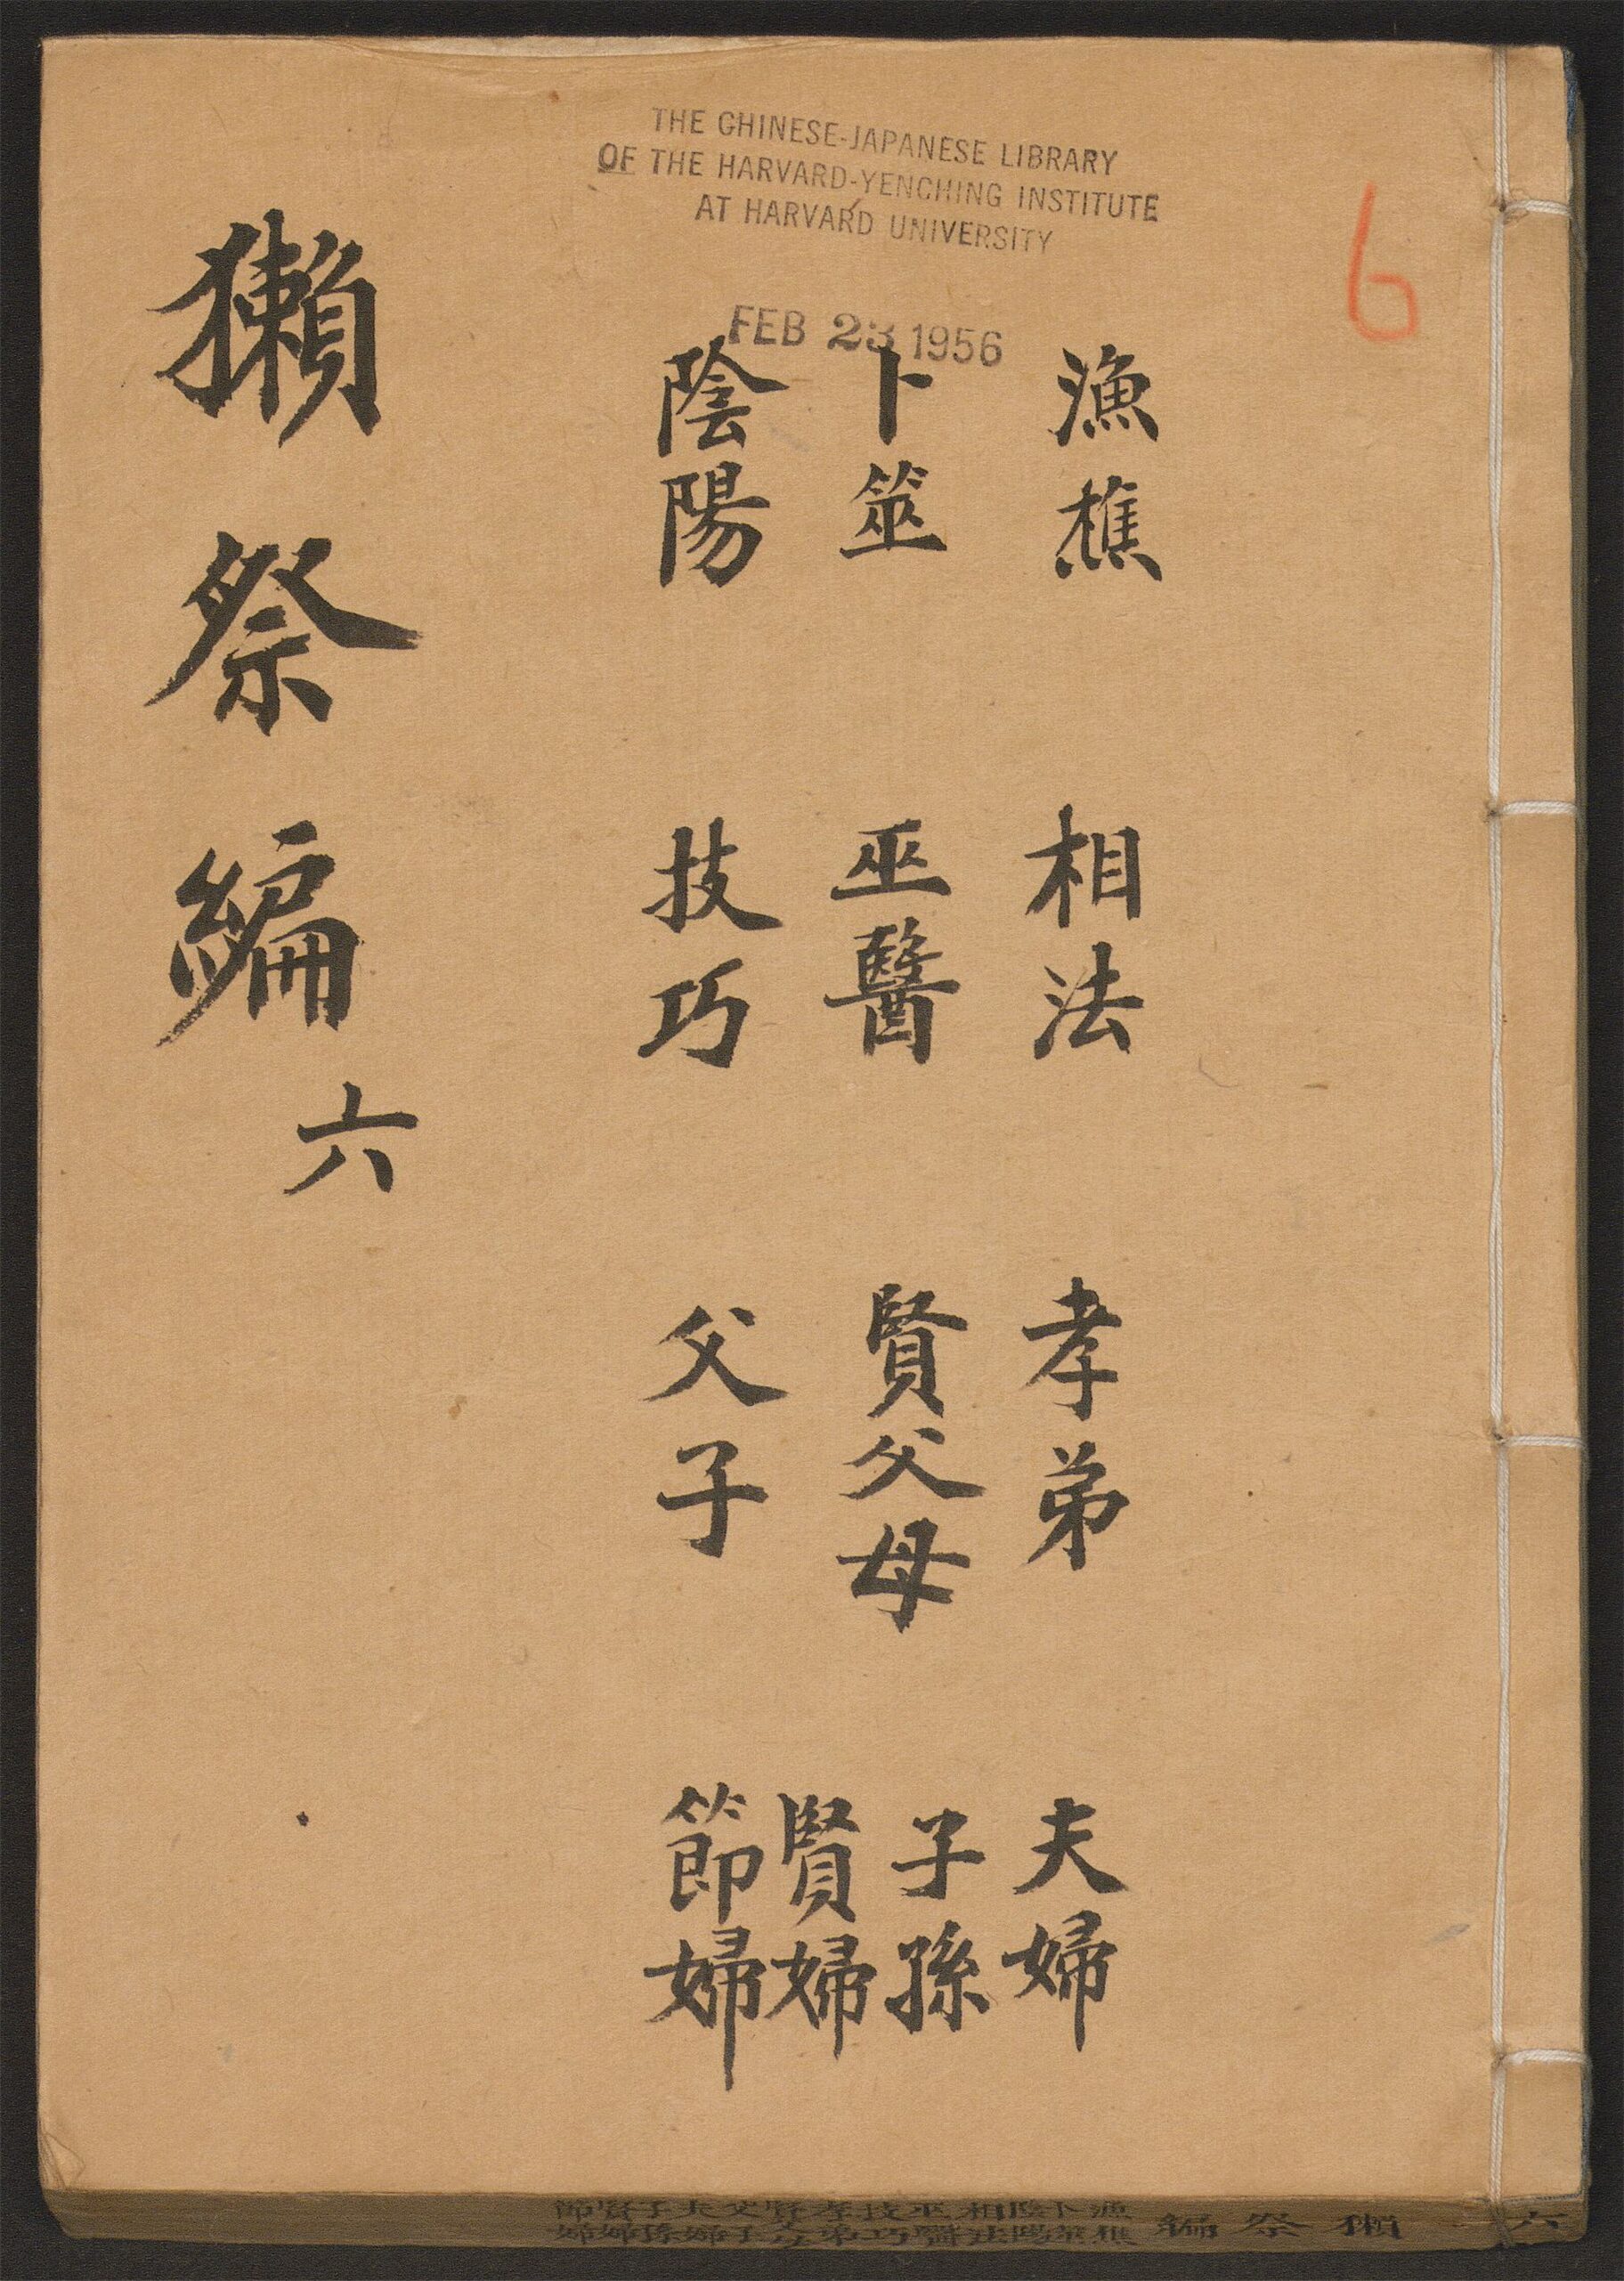 THE CHINESE-JAPANESE LIBRARY
OF THE HARVARD-YENCHING INSTITUTE
AT HARVARD UNIVERSITY
FEB 23 1956
6
漁樵 相法 孝弟 夫婦
卜筮 巫醫 賢父母 子孫
賢婦
陰陽 技巧 父子 節婦
獺祭編 六
六 獺祭編
漁卜陰相巫技孝賢父夫子賢節
樵筮陽法醫巧弟父子婦孫婦婦